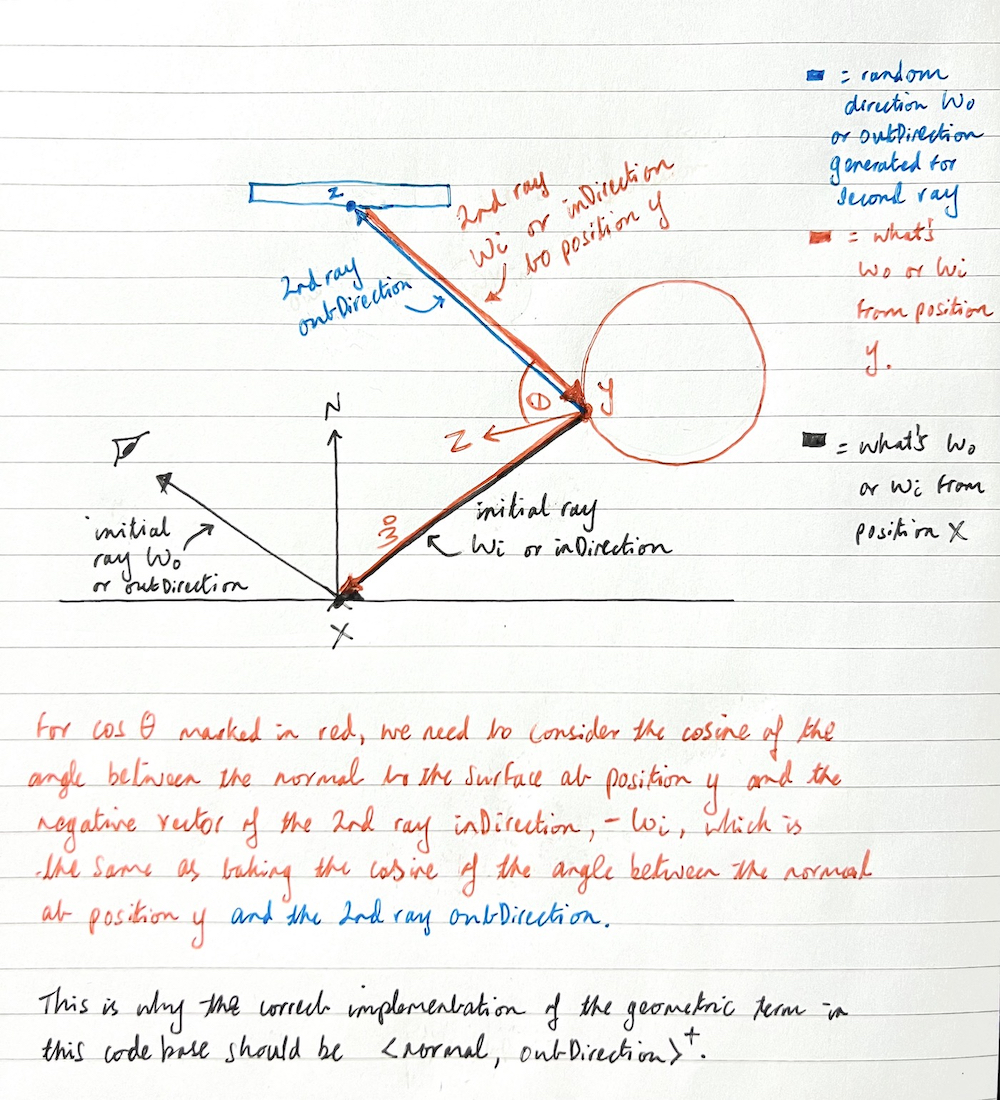 ■ = random
direction Wo
or outDirection
generated for
second ray
■ = what's
Wo or Wi
from position
y.
■ = what's Wo
or Wi from
position X
z
2nd ray
Wi or inDirection
to position y
2nd ray
outDirection
θ
y
N
N
initial
ray Wo
or outDirection
Wo
initial ray
Wi or inDirection
X
For cos θ marked in red, we need to consider the cosine of the
angle between the normal to the surface at position y and the
negative vector of the 2nd ray inDirection, - Wi, which is
the same as taking the cosine of the angle between the normal
at position y and the 2nd ray outDirection.
This is why the correct implementation of the geometric term in
this code base should be <normal, outDirection>⁺.